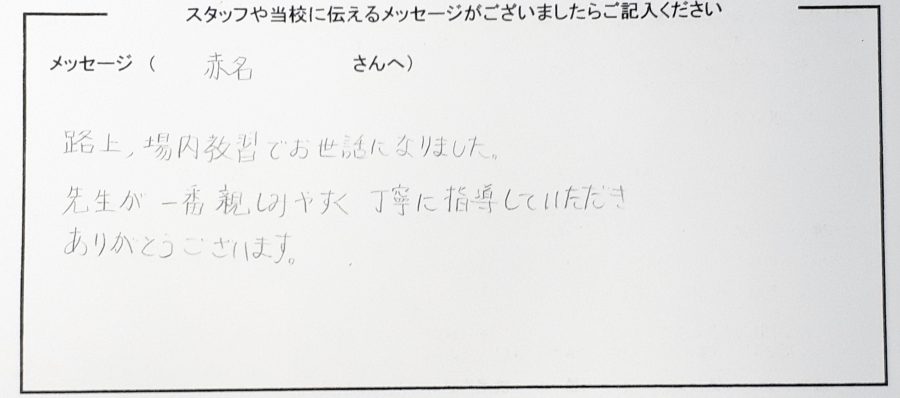 スタッフや当校に伝えるメッセージがございましたらご記入ください
メッセージ（ 赤名 さんへ）
路上，場内教習でお世話になりました。
先生が一番親しみやすく 丁寧に指導していただき
ありがとうございます。